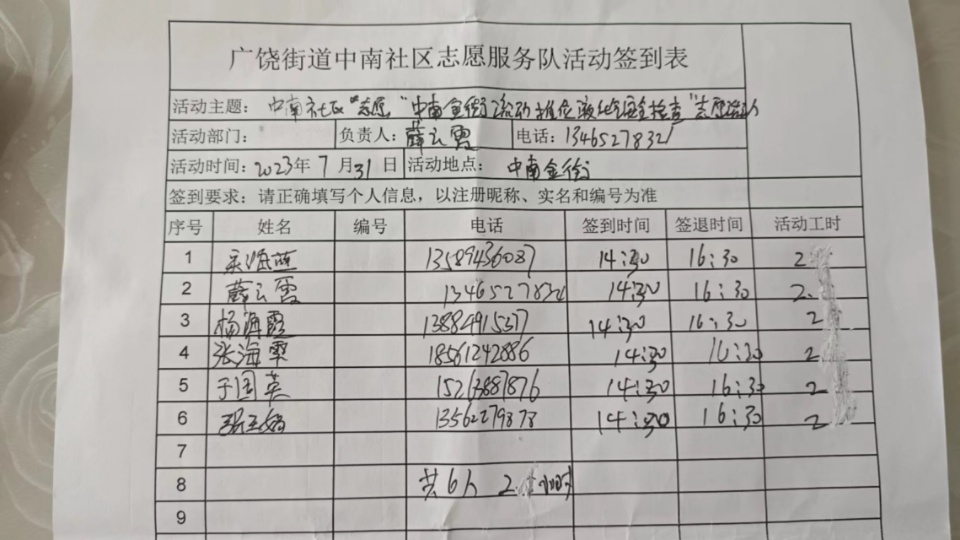 广饶街道中南社区志愿服务队活动签到表
活动主题：中南社区"志愿"中南金街活动推位液化气安全检查"志愿活动
活动部门： 负责人：薛云霞 电话：13465278321
活动时间：2023年7月31日 活动地点：中南金街
签到要求：请正确填写个人信息，以注册昵称、实名和编号为准
序号 姓名 编号 电话 签到时间 签退时间 活动工时
1 13589436087 14:30 16:30 2
2 薛云霞 1346527832 14:30 16:30 2
3 杨海霞 13884915377 14:30 16:30 2
4 张海燕 18561242886 14:30 16:30 2
5 于国英 15263887876 14:30 16:30 2
6 13562279878 14:30 16:30 2
7
8 共6人 2小时
9